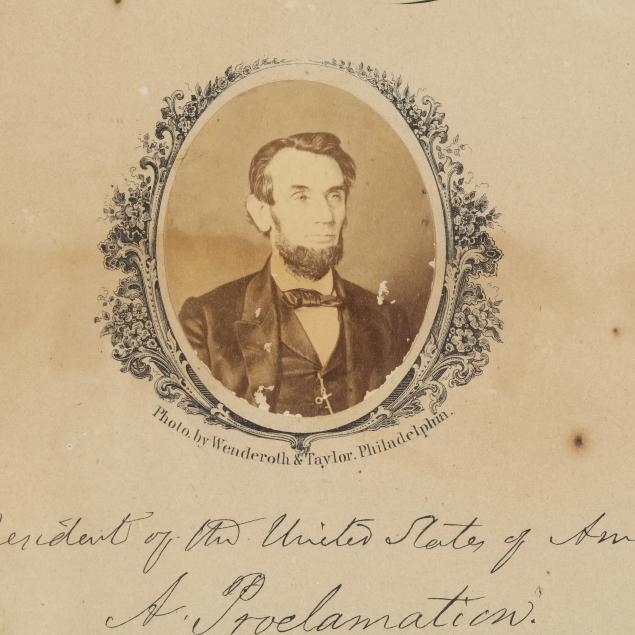 Photo. by Wenderoth & Taylor. Philadelphia.
resident of the United States of Am
A. Proclamation.